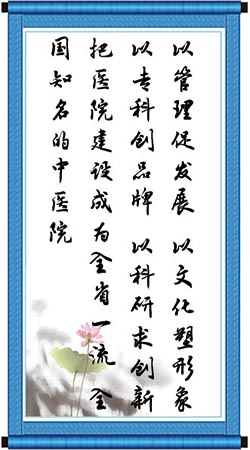 以管理促发展 以文化塑形象
以专科创品牌 以科研求创新
把医院建设成为全省一流 全
国知名的中医院